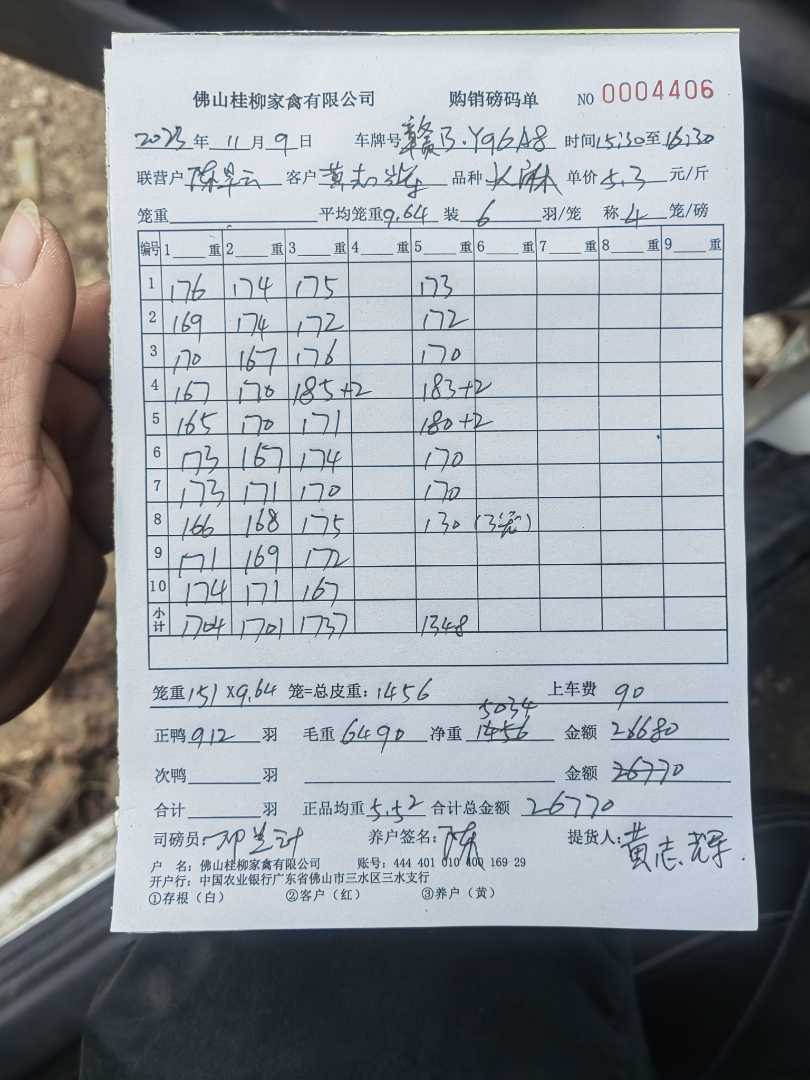 佛山桂柳家禽有限公司 购销磅码单 NO 0004406
2023年11月9日 车牌号赣B·Y96A8 时间15:30至16:30
联营户 陈 云 客户 黄志辉 品种 大麻 单价5.3元/斤
笼重 平均笼重9.64 装6羽/笼 称4笼/磅
编号 1 重 2 重 3 重 4 重 5 重 6 重 7 重 8 重 9 重
1 176 174 175 173
2 169 174 172 172
3 170 167 176 170
4 167 170 185+2 183+2
5 165 170 171 180+2
6 173 167 174 170
7 173 171 170 170
8 166 168 175 130 (3笼)
9 171 169 172
10 174 171 167
小计 1704 1701 1737 1348
笼重151X9.64笼=总皮重:1456 上车费 90
正鸭912羽 毛重6490 净重1456 5034 金额 26680
次鸭 羽 金额 26770
合计 羽 正品均重5.52 合计总金额 26770
司磅员: 养户签名:陈 提货人:黄志辉.
户 名:佛山桂柳家禽有限公司 账号:444 401 010 400 169 29
开户行:中国农业银行广东省佛山市三水区三水支行
①存根(白) ②客户(红) ③养户(黄)